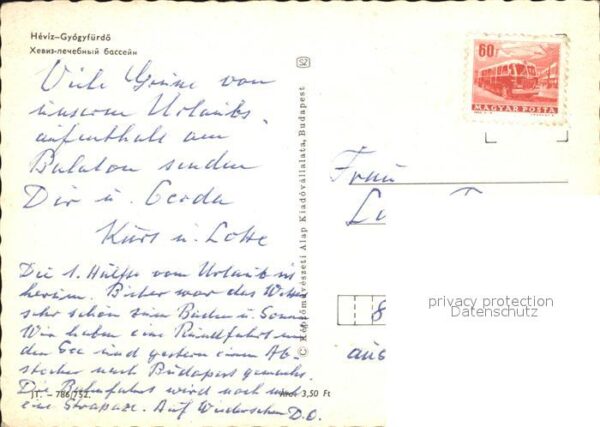 Hévíz–Gyógyfürdő
Хевиз-лечебный бассейн
Viele Grüsse von
unserem Urlaubs-
aufenthalt am
Balaton senden
Dir u. Gerda
Kurt u. Lotte
Die 1. Hälfte vom Urlaub is
herum. Bisher war das Wett
sehr schön zum Baden u. Sonn
Wir haben eine Rundfahrt um
den See und gestern einen Ab-
stecher nach Budapest gemacht.
Die Bahnfahrt wird noch mal
eine Strapaze. Auf Wiedersehen D.O.
JT. – 786/752.
Ára: 3,50 Ft
© Képzőművészeti Alap Kiadóvállalata, Budapest
SZ
60f
MAGYAR POSTA
Frau
8
aus
privacy protection
Datenschutz